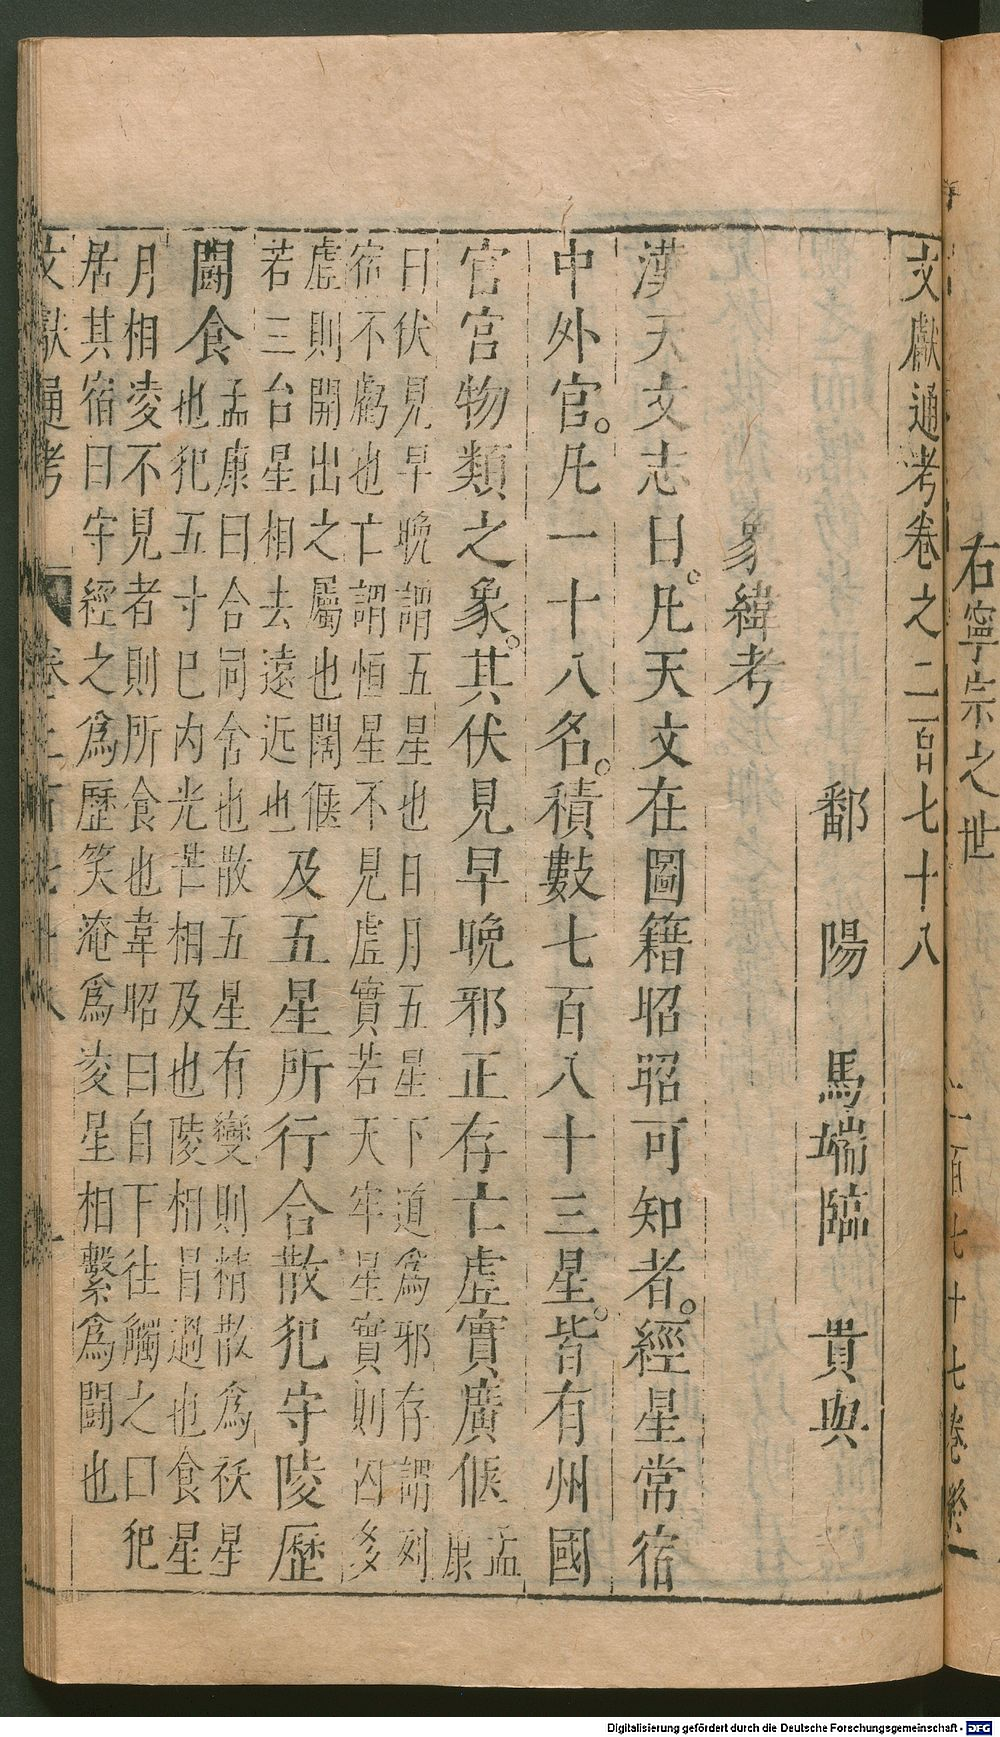 右寧宗之世
二百七十七卷終
文獻通考卷之二百七十八
鄱陽馬端臨貴與
象緯考
漢天文志曰。凡天文在圖籍昭昭可知者。經星常宿
中外官。凡一十八名。積數七百八十三星。皆有州國
官宮物類之象。其伏見早晚邪正存亡虛實廣偃孟康
曰伏見早晚謂五星也日月五星下道爲邪存謂列
宿不虧也亡謂恒星不見虛實若天牢星實則囚多
虛則開出之屬也闊偃
若三台星相去遠近也
及五星所行合散犯守陵歷
鬪食
孟康曰合同舍也散五星有變則精散爲祅星
也犯五寸已内光芒相及也陵相冒過也食星
月相凌不見者則所食也韋昭曰自下往觸之曰犯
居其宿曰守經之爲歷笑淹爲凌星相繫爲鬪也
文獻通考
卷二百七十八
一
Digitalisierung gefördert durch die Deutsche Forschungsgemeinschaft - DFG